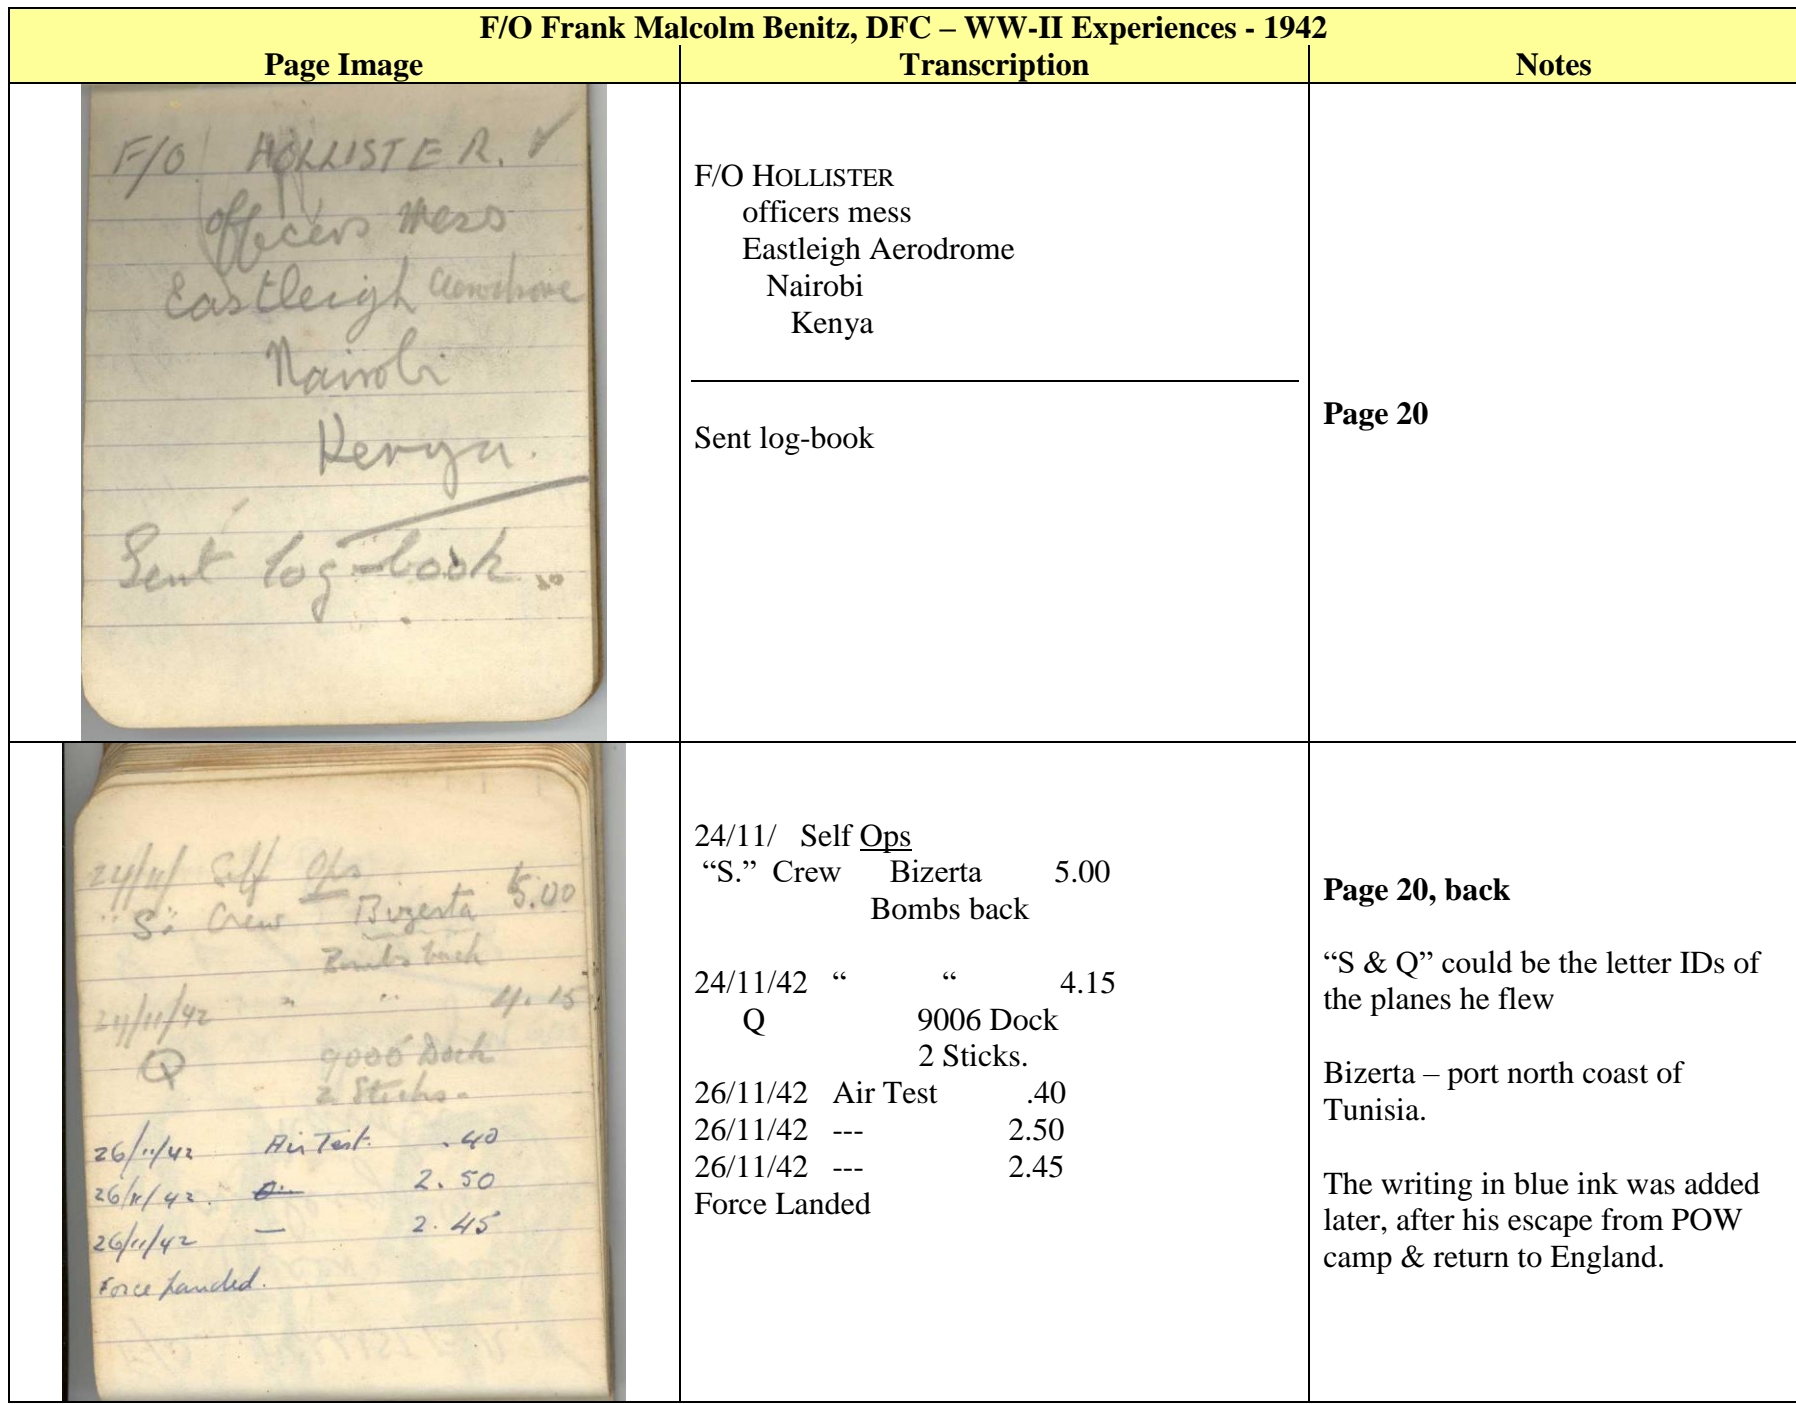 F/O Frank Malcolm Benitz, DFC – WW-II Experiences - 1942
Page Image Transcription Notes
F/O HOLLISTER.
officers mess
Eastleigh Aerodrome
Nairobi
Kenya.
Sent log-book.
20
F/O HOLLISTER
officers mess
Eastleigh Aerodrome
Nairobi
Kenya
Sent log-book
Page 20
24/11/ Self Ops
"S." Crew Bizerta 5.00
Bombs back
24/11/42 " " 4.15
Q 9000' Dock
2 Sticks.
26/11/42 Air Test. .40
26/11/42. 2.50
26/11/42 — 2.45
Force Landed.
24/11/ Self Ops
“S.” Crew Bizerta 5.00
Bombs back
24/11/42 “ “ 4.15
Q 9006 Dock
2 Sticks.
26/11/42 Air Test .40
26/11/42 --- 2.50
26/11/42 --- 2.45
Force Landed
Page 20, back
“S & Q” could be the letter IDs of
the planes he flew
Bizerta – port north coast of
Tunisia.
The writing in blue ink was added
later, after his escape from POW
camp & return to England.